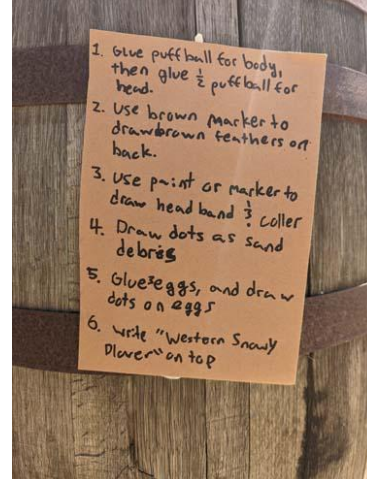 1. Glue puff ball for body,
then glue 1/2 puff ball for
head.
2. Use brown marker to
draw brown feathers on
back.
3. Use paint or marker to
draw head band & coller
4. Draw dots as sand
debris
5. Glue eggs, and draw
dots on eggs
6. write "Western Snowy
Plover" on top